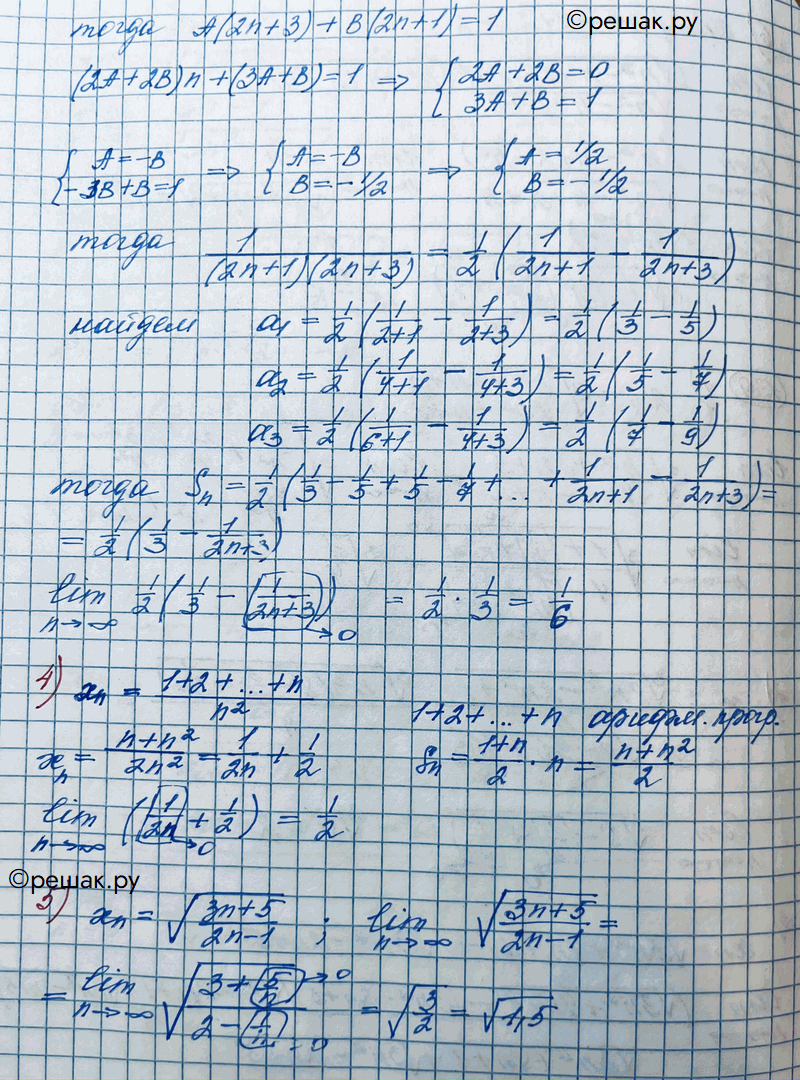 тогда A(2n+3)+B(2n+1)=1
©решак.ру
(2A+2B)n+(3A+B)=1 => { 2A+2B=0
3A+B=1
{ A=-B
-3B+B=1 => { A=-B
B=-1/2 => { A=1/2
B=-1/2
тогда 1/((2n+1)(2n+3)) = 1/2 (1/(2n+1) - 1/(2n+3))
найдем a1 = 1/2 (1/(2+1) - 1/(2+3)) = 1/2 (1/3 - 1/5)
a2 = 1/2 (1/(4+1) - 1/(4+3)) = 1/2 (1/5 - 1/7)
a3 = 1/2 (1/(6+1) - 1/(4+3)) = 1/2 (1/7 - 1/9)
тогда Sn = 1/2 (1/3 - 1/5 + 1/5 - 1/7 + ... + 1/(2n+1) - 1/(2n+3)) =
= 1/2 (1/3 - 1/(2n+3))
lim n→∞ 1/2 (1/3 - (1/(2n+3))) → 0 = 1/2 · 1/3 = 1/6
4) xn = (1+2+...+n)/n²
1+2+...+n арифм. прогр.
xn = (n+n²)/2n² = 1/2n + 1/2
Sn = (1+n)/2 · n = (n+n²)/2
lim n→∞ (1/2n + 1/2) = 1/2
→ 0
©решак.ру
5) xn = √((3n+5)/(2n-1)) ; lim n→∞ √((3n+5)/(2n-1)) =
= lim n→∞ √((3+(5/n))/(2-(1/n))) → 0 = √(3/2) = √1,5
= 0